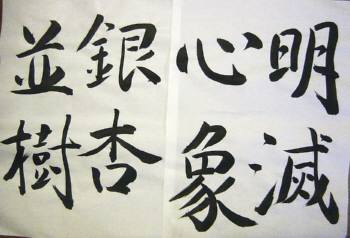 明滅
心象
銀杏
並樹